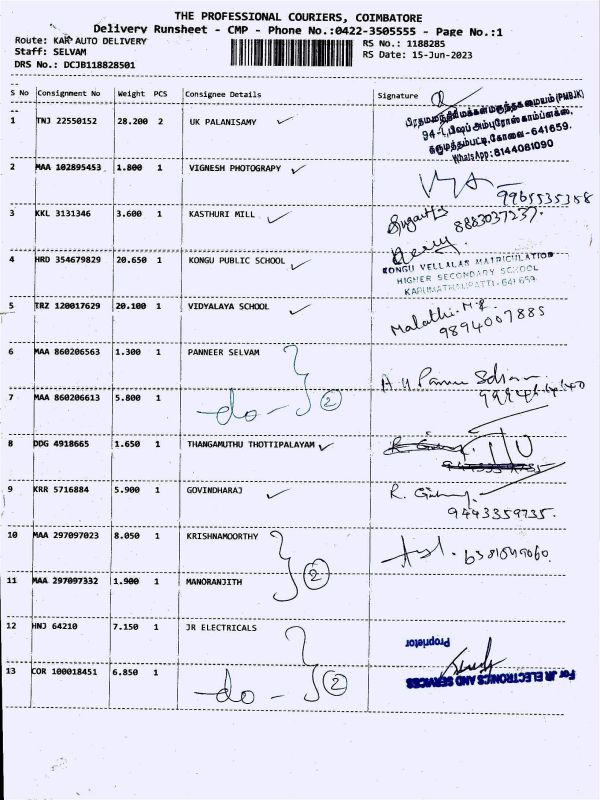 THE PROFESSIONAL COURIERS, COIMBATORE
Delivery Runsheet - CMP - Phone No.:0422-3505555 - Page No.:1
Route: KAR AUTO DELIVERY
RS No.: 1188285
Staff: SELVAM
RS Date: 15-Jun-2023
DRS No.: DCJB118828501
S No Consignment No Weight PCS Consignee Details Signature
1 TNJ 22550152 28.200 2 UK PALANISAMY
94-1, பிஷப் அம்புரோஸ் காம்ப்ளக்ஸ்,
கருமத்தம்பட்டி, கோவை - 641659.
WhatsApp: 8144081090
2 MAA 102895453 1.800 1 VIGNESH PHOTOGRAPY
9965535358
3 KKL 3131346 3.600 1 KASTHURI MILL
8883037237.
4 HRD 354679829 20.650 1 KONGU PUBLIC SCHOOL
KONGU VELLALAR MATRICULATION
HIGHER SECONDARY SCHOOL
KARUMATHAMPATTI-641 659
5 TRZ 120017629 20.100 1 VIDYALAYA SCHOOL
Malathi. M.R
9894007885
6 MAA 860206563 1.300 1 PANNEER SELVAM
7 MAA 860206613 5.800 1
do - 2
8 DDG 4918665 1.650 1 THANGAMUTHU THOTTIPALAYAM
9 KRR 5716884 5.900 1 GOVINDHARAJ
9443359735.
10 MAA 297097023 8.050 1 KRISHNAMOORTHY
2
11 MAA 297097332 1.900 1 MANORANJITH
12 HNJ 64210 7.150 1 JR ELECTRICALS
13 COR 100018451 6.850 1
do - 2
For JR ELECTRONICS AND SERVICES
Proprietor